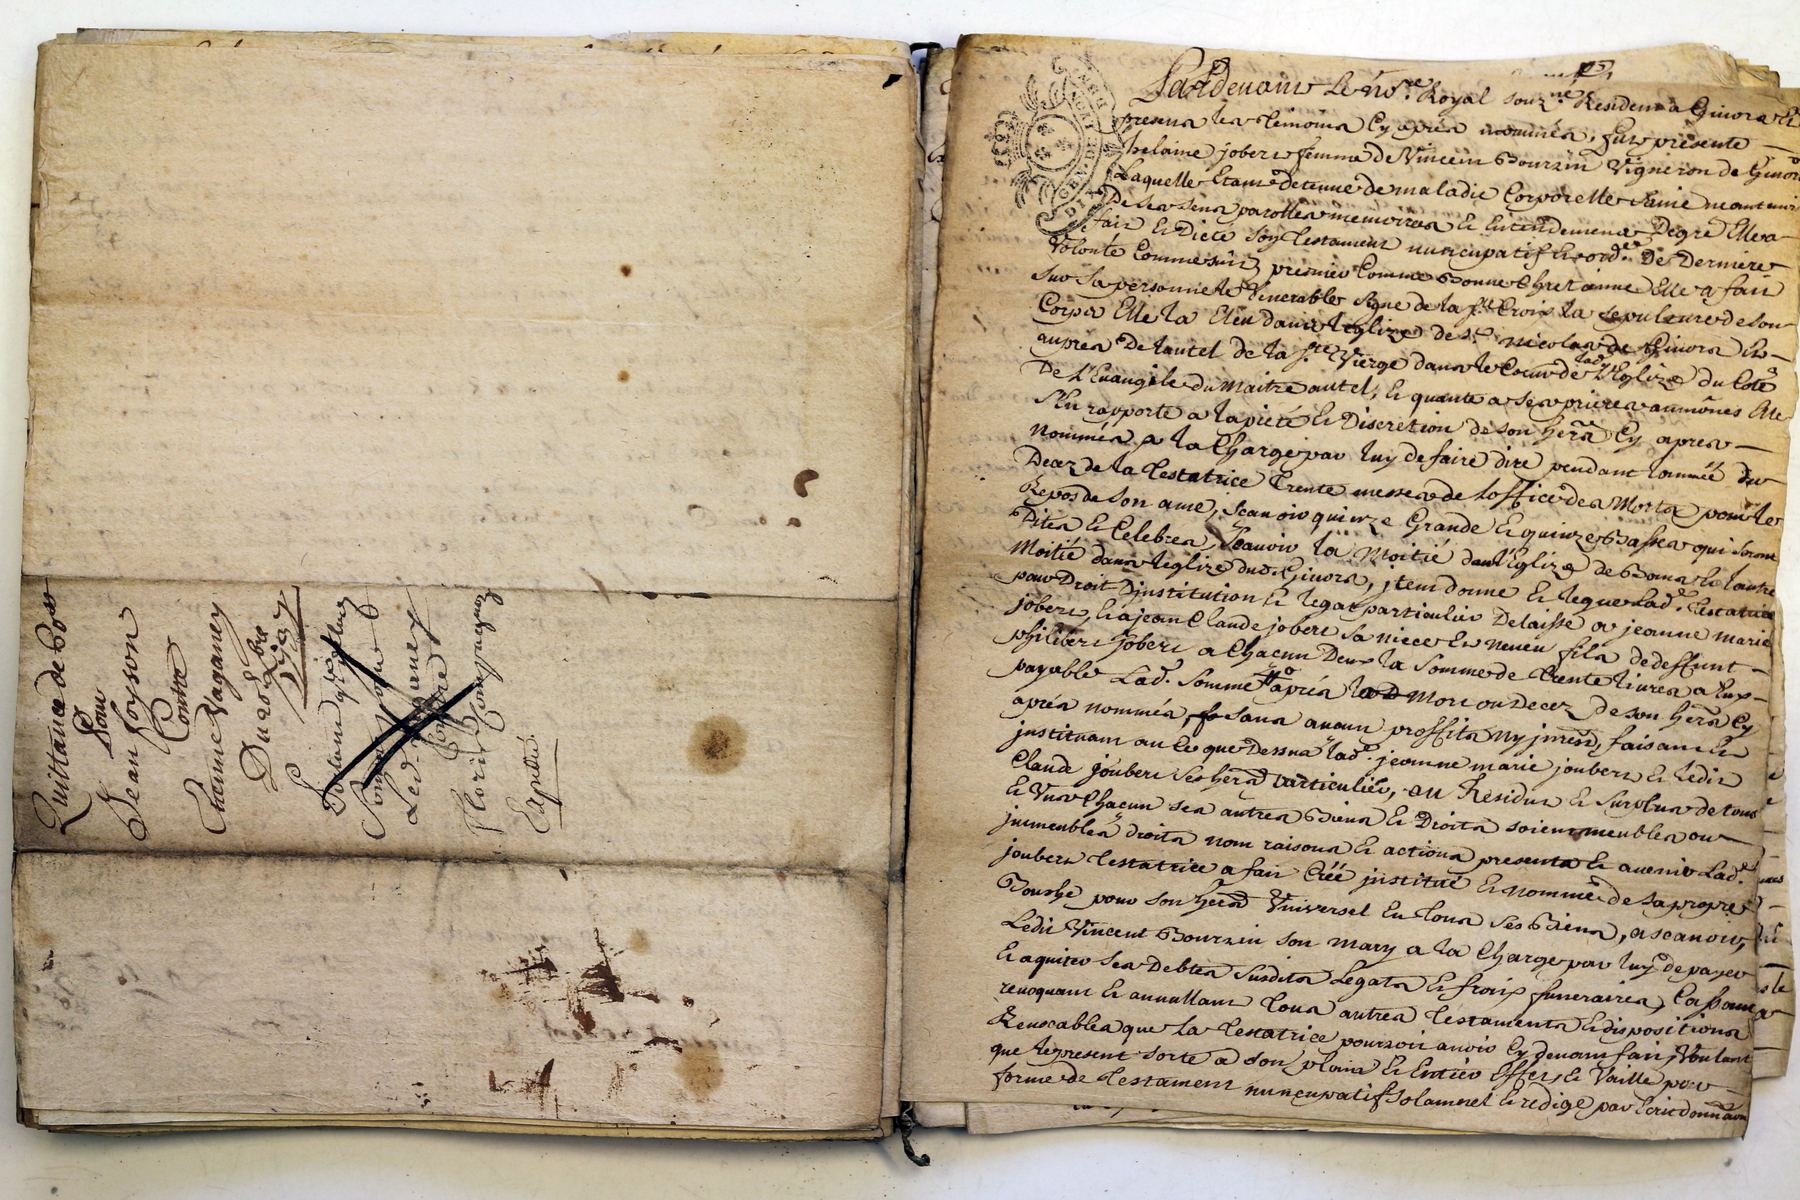 Quittance de
Pour
Jean Foyson
Contre
Etienne Vaganey
Du 10 8bre
Contre
Expedié
GEN. DE
Pardevant Le no.re Royal sous.né Resident a Givors Et
presens les temoins Cy apres nommés, fut presente
helaine jobert femme de Vincent Bourzin Vigneron de Givors
Laquelle Etant detenue de maladie Corporelle saine neantmoins
De ses sens parolles memoires Et Entendement, De gré Elle a
fait Et Dicté son testament nuncupatif Et ord.ce De Derniere
Volonté Comme suit, premier Comme Bonne Chretienne Elle a fait
sur sa personne le Venerable signe de la s.te Croix la sepulture de son
Corps Elle la Eleu dans leglize de s.t nicolas de Givors Et
aupres De lautel de la s.te Vierge dans le Coeur de lad. Eglize du Coté
De l'Evangile du maitre autel, Et quante a ses prieres aumônes Elle
s'En rapporte a la pieté Et Discretion de son herer Cy apres
nommés a la Charge par luy de faire dire pendant lannéé du
Decez de la testatrice trente messes de loffice des Morts pour le
Repos de son ame, scavoir quinze Grande Et quinze Basses qui seront
Dites Et Celebres, scavoir la Moitié dans l'Eglize de Bans Et lautre
Moitié dans leglize dud. Givors, jtem donne Et legue Lad.e testatrice
pour Droit D'institution Et legat particulier Delaisse a jeanne marie
jobert, Et a jean Claude jobert sa niece Et neveu fils de deffunt
philibert Jobert a Chacun Deux la Somme de trente livres a Eux
payable Lad. somme apres la Mort ou Decez de son herer Cy
apres nommés, sans aucun proffits ny jnrest, faisant Et
jnstituant au Ce que Dessus lad.e jeanne marie joubert Et ledit
Claude joubert ses herers particuliers, au Residus Et surplus de tous
Et Uns Chacun ses autres Biens Et Droits soient meubles ou
jmmeubles droits nom raisons Et actions presents Et avenir Lad.e
joubert testatrice a fait Créé jnstitué Et nommé de sa propre
Bouche pour son herer Universel En tous ses Biens, a scavoir,
Ledit Vincent Bourzin son mary a la Charge par luy de payer
Et aquiter ses Debtes susdits Legats Et frais funeraires,
revoquant Et annullant tous autres testaments Et dispositions
Revocables que la testatrice pourroit avoir Cy devant fait, Voulant
que le present sorte a son plain Et Entier Effet, Et Vaille par
forme de testament nuncupatif solamnel Et redigé par Ecrit